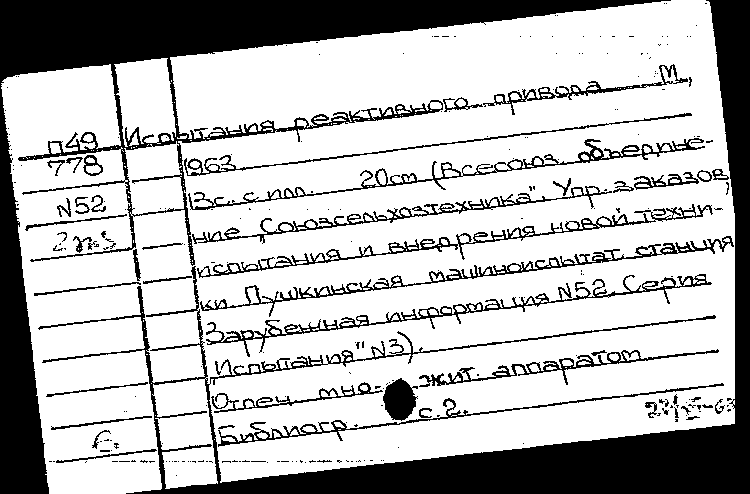 П49 Испытания реактивного привода М.,
778 1963.
N52 13с. с илл. 20см (Всесоюз. объедине-
2 экз ние „Союзсельхозтехника". Упр. заказов,
испытания и внедрения новой техни-
ки. Пушкинская машиноиспытат. станция
Зарубежная информация N52. Серия
"Испытания" N3).
Отпеч. множит. аппаратом
Библиогр. с.2.